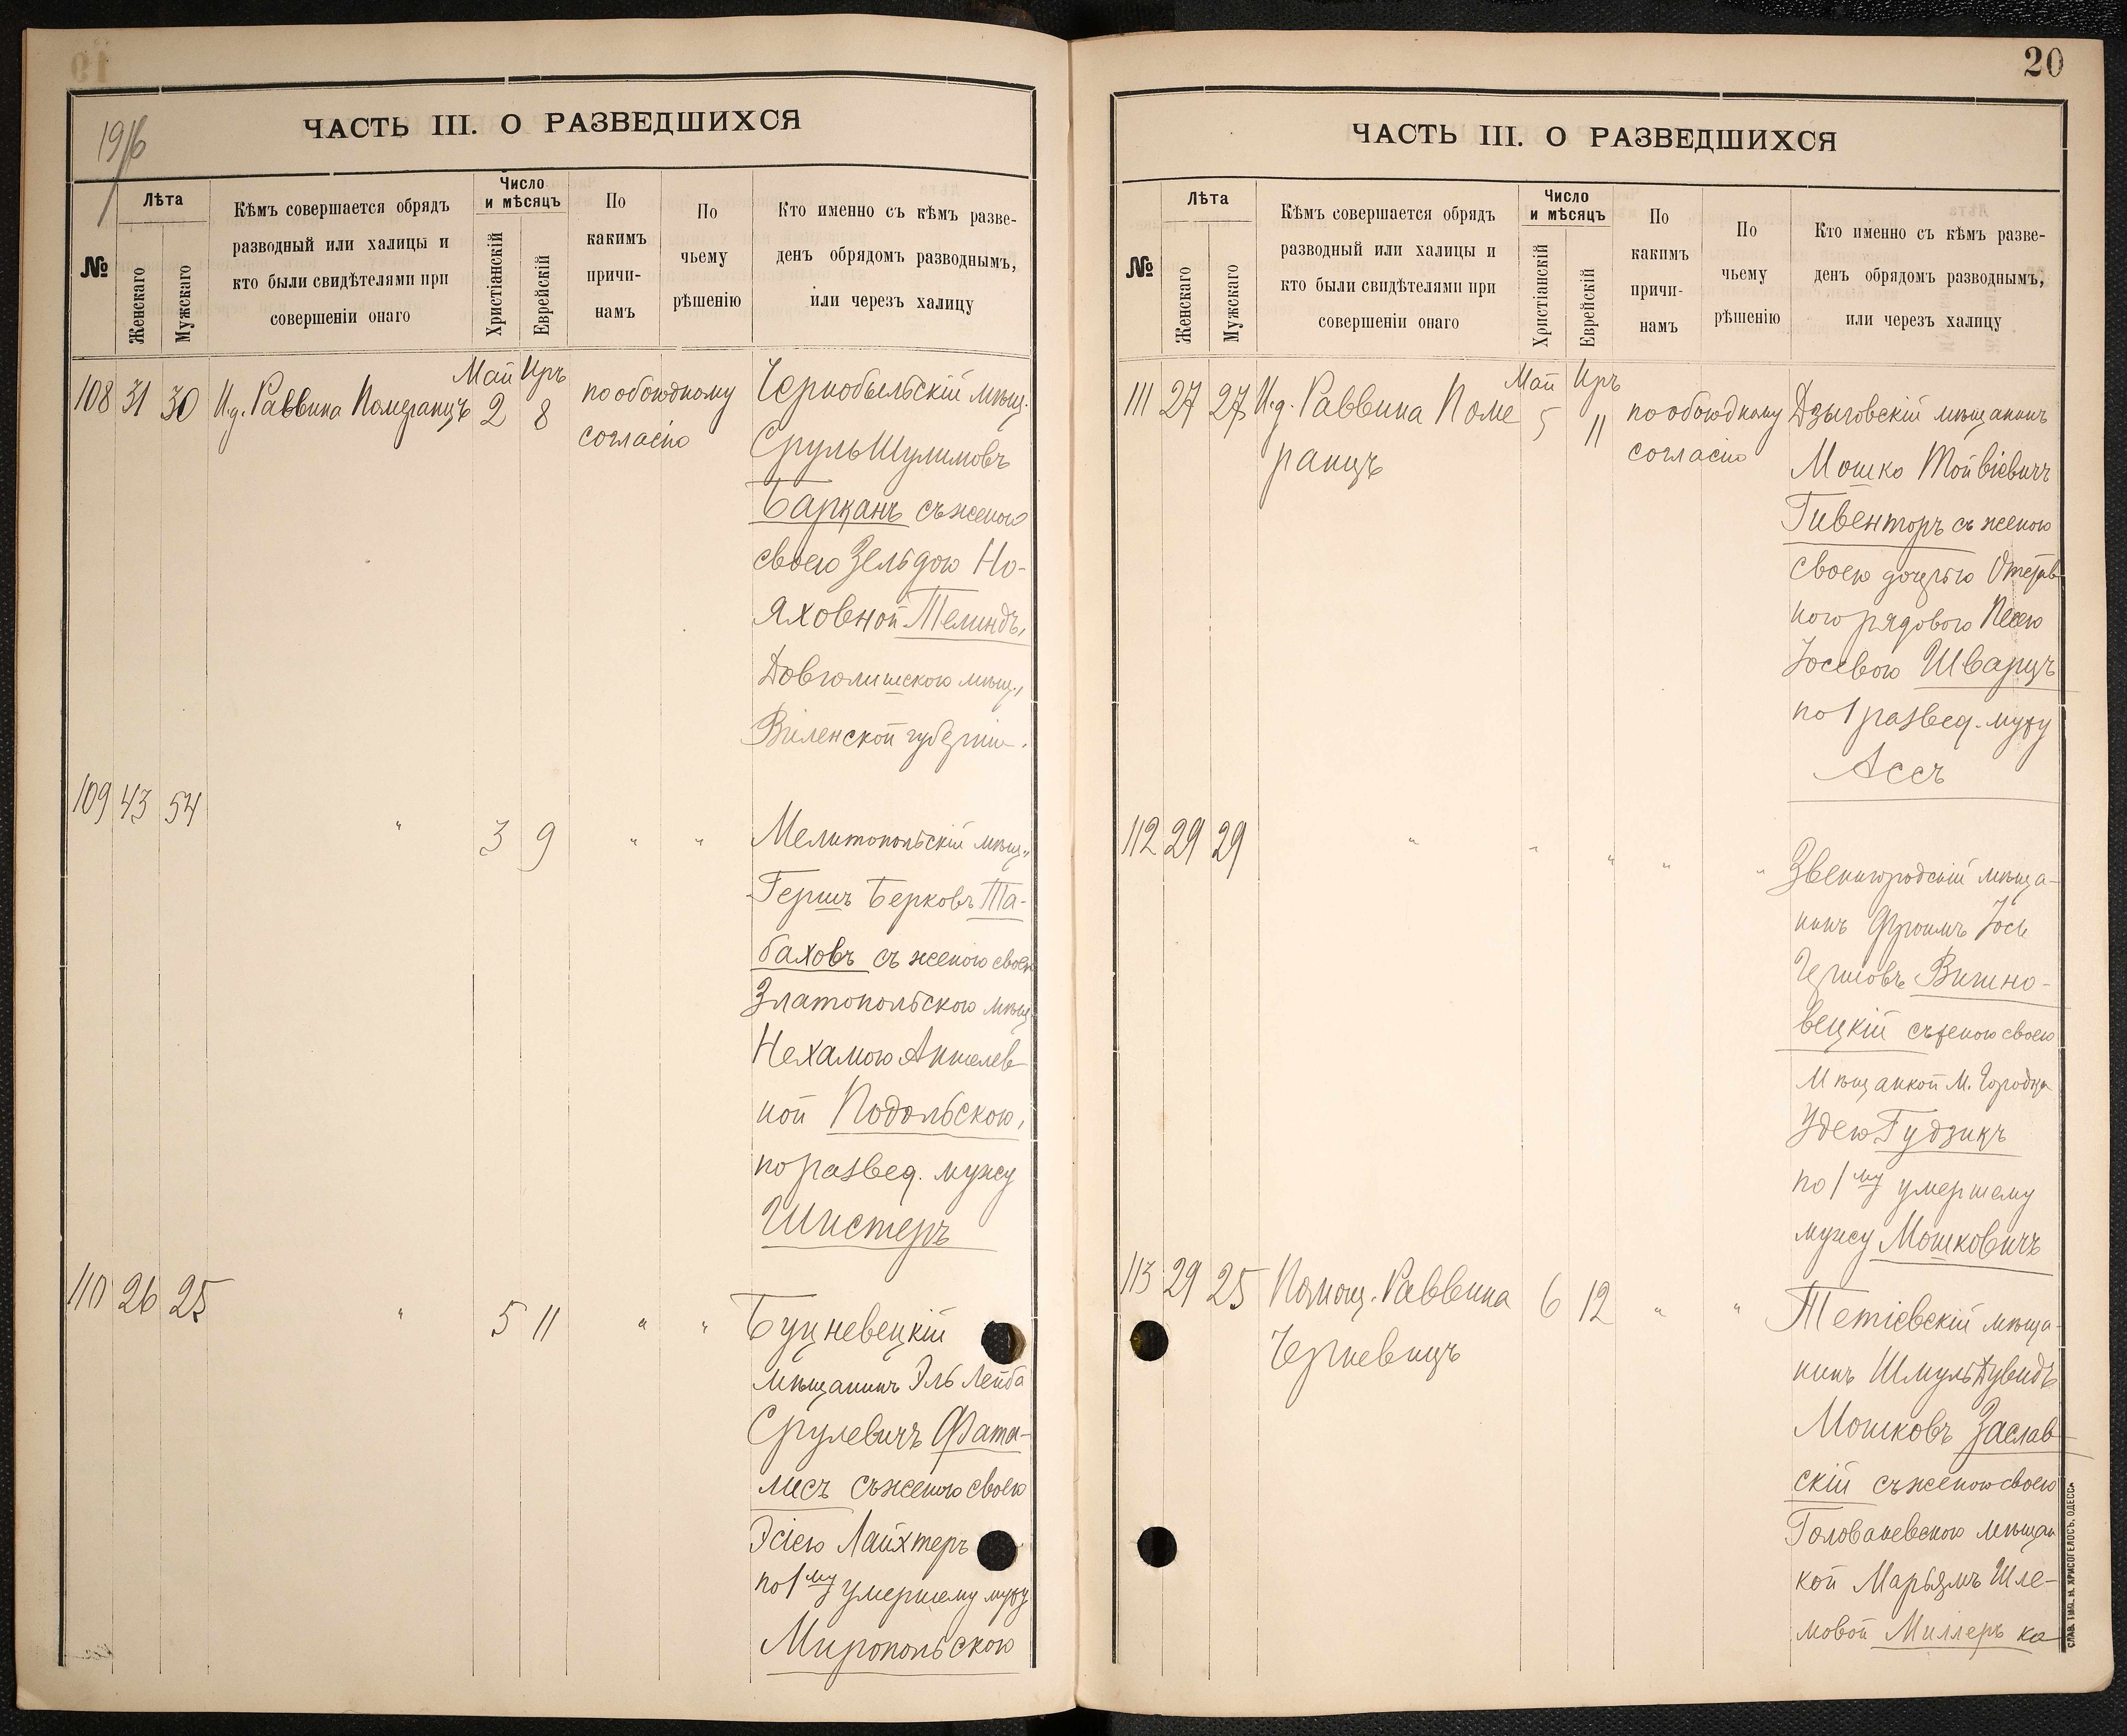 1916
ЧАСТЬ III. О РАЗВЕДШИХСЯ
№
Лѣта
Женскаго
Мужскаго
Кѣмъ совершается обрядъ
разводный или халицы и
кто были свидѣтелями при
совершеніи онаго
Число
и мѣсяцъ
Христіанскій
Еврейскій
По
какимъ
причи-
намъ
По
чьему
рѣшенію
Кто именно съ кѣмъ разве-
денъ обрядомъ разводнымъ,
или черезъ халицу
108 31 30 И.д. Раввина Померанцъ Май 2 Иръ 8
по обоюдному
согласію
Чернобыльскій мѣщ.
Сруль Шулимовъ
Барканъ съ женою
своею Зельдою Но-
яховной Телиндъ,
мѣщ.,
Виленской губерніи.
109 43 54 " 3 9 " "
Мелитопольскій мѣщ.
Гершъ Берковъ Та-
баховъ съ женою своею
Златопольскою мѣщ.
Нехамою Аншелев-
ной Подольскою,
по развед. мужу
Шистеръ
110 26 25 " 5 11 " "
Буцневецкій
мѣщанинъ Эль Лейба
Срулевичъ Фата-
лисъ съ женою своею
Эсіею Лайхтеръ
по 1му умершему мужу
Миропольскою
20
ЧАСТЬ III. О РАЗВЕДШИХСЯ
№
Лѣта
Женскаго
Мужскаго
Кѣмъ совершается обрядъ
разводный или халицы и
кто были свидѣтелями при
совершеніи онаго
Число
и мѣсяцъ
Христіанскій
Еврейскій
По
какимъ
причи-
намъ
По
чьему
рѣшенію
Кто именно съ кѣмъ разве-
денъ обрядомъ разводнымъ,
или черезъ халицу
111 27 27 И.д. Раввина Поме
ранцъ
Май 5 Иръ 11
по обоюдному
согласію
Дзыговскій мѣщанинъ
Мошко Тойвіевичъ
Гивенторъ съ женою
своею дочерью Отстав-
ного рядового Песею
Іосевою Шварцъ
по 1 развед. мужу
Ассъ
112 29 29 " " " " "
Звенигородскій мѣща-
нинъ Фроимъ Іось
Вишно-
вецкій съ женою своею
Мѣщанкой м. Городка
Удею Гудзикъ
по 1му умершему
мужу Мошковичъ
113 29 25 Помощ. Раввина
Черневицъ
6 12 " "
Тетіевскій мѣща-
нинъ Шмуль Дувидъ
Мошковъ Заслав-
скій съ женою своею
Голованевскою мѣщан
кой Марьямъ Шле-
мовой Миллеръ ко
СЛАВ. ТИП. Н. ХРИСОГЕЛОСЪ, ОДЕССА